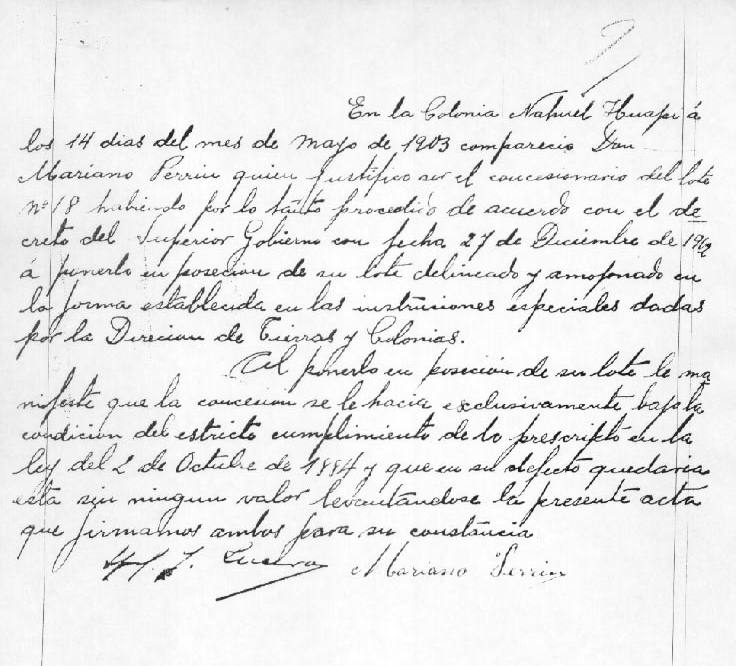 En la Colonia Nahuel Huapi á
los 14 dias del mes de mayo de 1903 comparecio Don
Mariano Perrin quien justifico ser el concesionario del lote
Nº 18 habiendo por lo tanto procedido de acuerdo con el de
creto del Superior Gobierno con fecha 27 de Diciembre de 1902
á ponerlo en posecion de su lote delineado y amojonado en
la forma establecida en las instruciones especiales dadas
por la Direcion de Tierras y Colonias.
Al ponerlo en posecion de su lote le ma
nifeste que la concecion se le hacia exclusivamente bajo la
condicion del estricto cumplimiento de lo prescripto en la
ley del 2 de Octubre de 1884 y que en su defecto quedaria
esta sin ningun valor levantandose la presente acta
que firmamos ambos para su constancia
Mariano Perrin